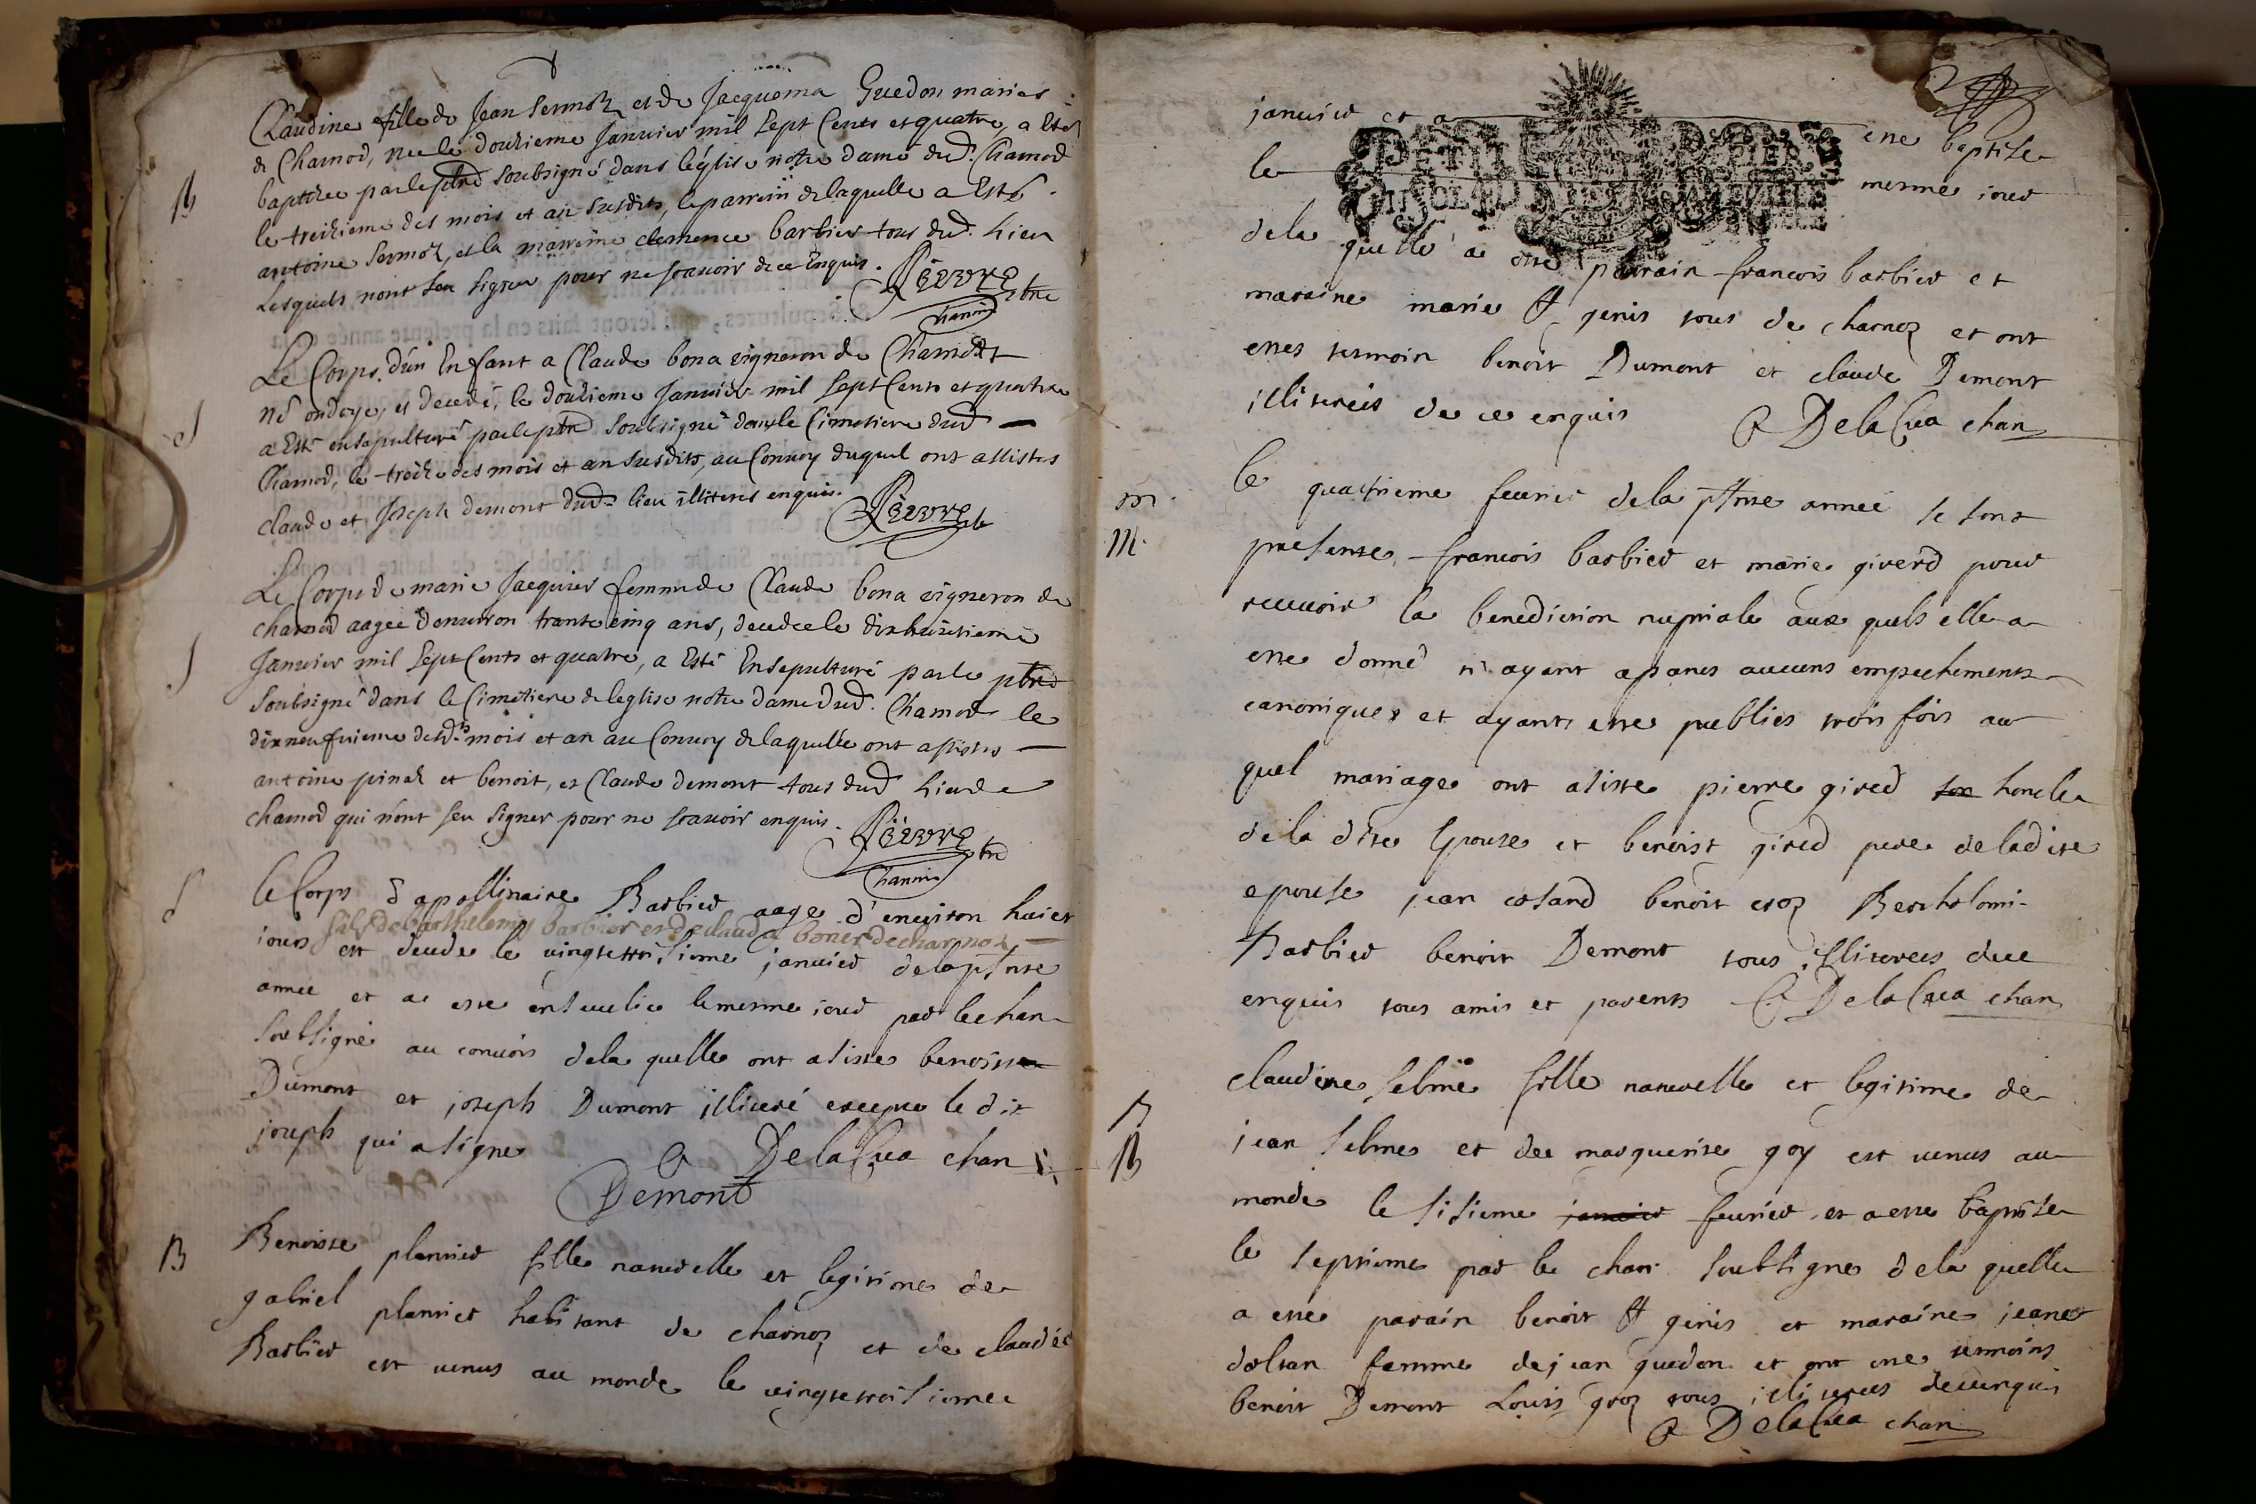 Claudine fille de Jean Sermoz et de Jacquema Guedon maries
de Charnod, nee le douzieme Januier mil Sept Cents et quatre, a Esté
B
baptizee par le pbre Soubsigné dans l'église notre dame dud. Charnod
le treizieme des mois et an Susdits, le parrein de laquelle a Esté
antoine Sermoz, et la marreine clemence barbier tous dud. Lieu
Lesquels n'ont Seu Signer pour ne scauoir de ce Enquis.
pbre
chanin
Le Corps d'un Enfant a Claude bona vigneron de Charnod
né ondoyé, et decedé, le douzieme Januier mil Sept Cents et quatre
S
a Esté ensepulturé par le pbre Soubsigné dans le Cimetiere dud
Charnod, le treize des mois et an susdits, au Conuoy duquel ont assistes
claude et Joseph demont dud. lieu illiteres enquis.
Le Corps de marie Jacquier femme de Claude bona vigneron de
charnod aagée d'enuiron trante cinq ans, decedee le dixhuictieme
S
Januier mil Sept Cents et quatre, a Esté Ensepulturé par le pbre
Soubsigné dans le Cimetiere de l'eglise notre dame dud. Charnod le
dixneufuieme desd. mois et an au Conuoy de laquelle ont assistes
antoine pinaz et benoit, et Claude demont tous dud Lieu de
charnod qui n'ont seu signer pour ne scauoir enquis.
pbre
chanin
S
le Corps d'apollinaire Barbier aage d'enuiron huict
fils de barthelemy barbier et de clauda boner de charnoz
iours est decede le vingtetroisieme januier de la pñte
annee et a este enseuelie le mesme iour par le chan
soubsigné au conuois de la quelle ont asistes benoist
Dumont et joseph Dumont illiteré excepte le dit
joseph qui a signe
Delacrea chan
Demont
B
Benoiste plannier fille naturelle et legitime de
gabriel plannier habitant de charnoz et de claudée
Barbier est venus au monde le vingtetroisieme
januier et a este baptisée
le mesme iour
de la quelle a este parrain francois barbier et
maraine marie St genis tous de charnoz et ont
estes tesmoin benoit Dumont et claude Demont
illiterés de ce enquis Delacrea chan
m.
le quatrieme feurier de la pñte année se sont
M.
presente francois barbier et marie girerd pour
receuoir la benediction nuptiale aux quels elle a
este donné n'ayant aparus aucuns empechements
canoniques et ayants este publies trois fois au
quel mariage ont asiste pierre gired son honcle
de la dite Epouse et benoist gired pere de la dite
epouse jean cosand benoit croz Bertholomi
Barbier benoit Demont tous illiterees de ce
enquis tous amis et parents Delacrea chan
claudine selme fille naturelle et legitime de
B
jean selme et de marguerite goy est venus au
B
monde le sisieme januier feurier et a este baptisée
le septieme par le chan soubsigné de la quelle
a este parain benoit St genis et maraine jeane
dolsan femme de jean guedon et ont este tesmoins
benoit Demont Louis groz tous illiterees de ce enquis
Delacrea chan